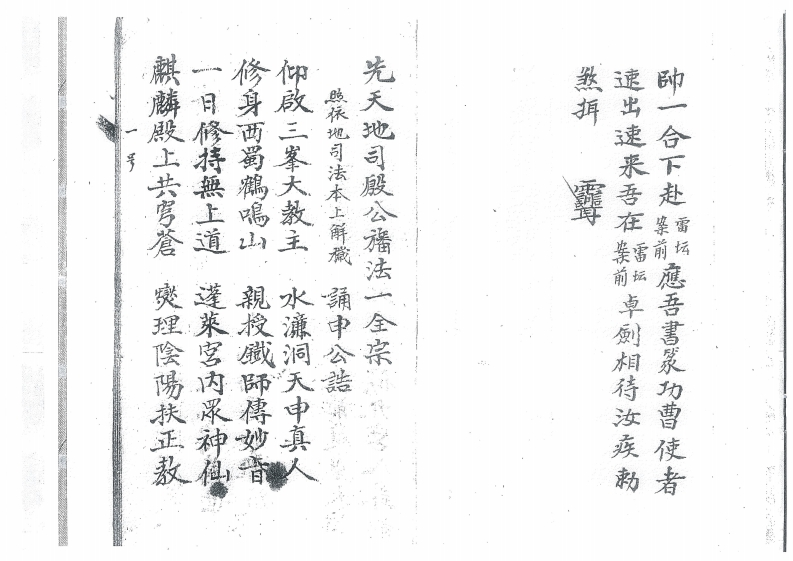 帥一合下赴雷坛案前應吾書篆功曹使者
速出速来吾在雷坛案前卓劍相待汝疾勅
煞揖
先天地司殷公旛法一全宗
照依地司法本上解穢 誦申公誥
仰啟三峯大教主 水濂洞天申真人
修身西蜀鶴鳴山 親授鐵師傳妙音
一日修持無上道 蓬萊宮內眾神仙
麒麟殿上共穹蒼 燮理陰陽扶正教
一号